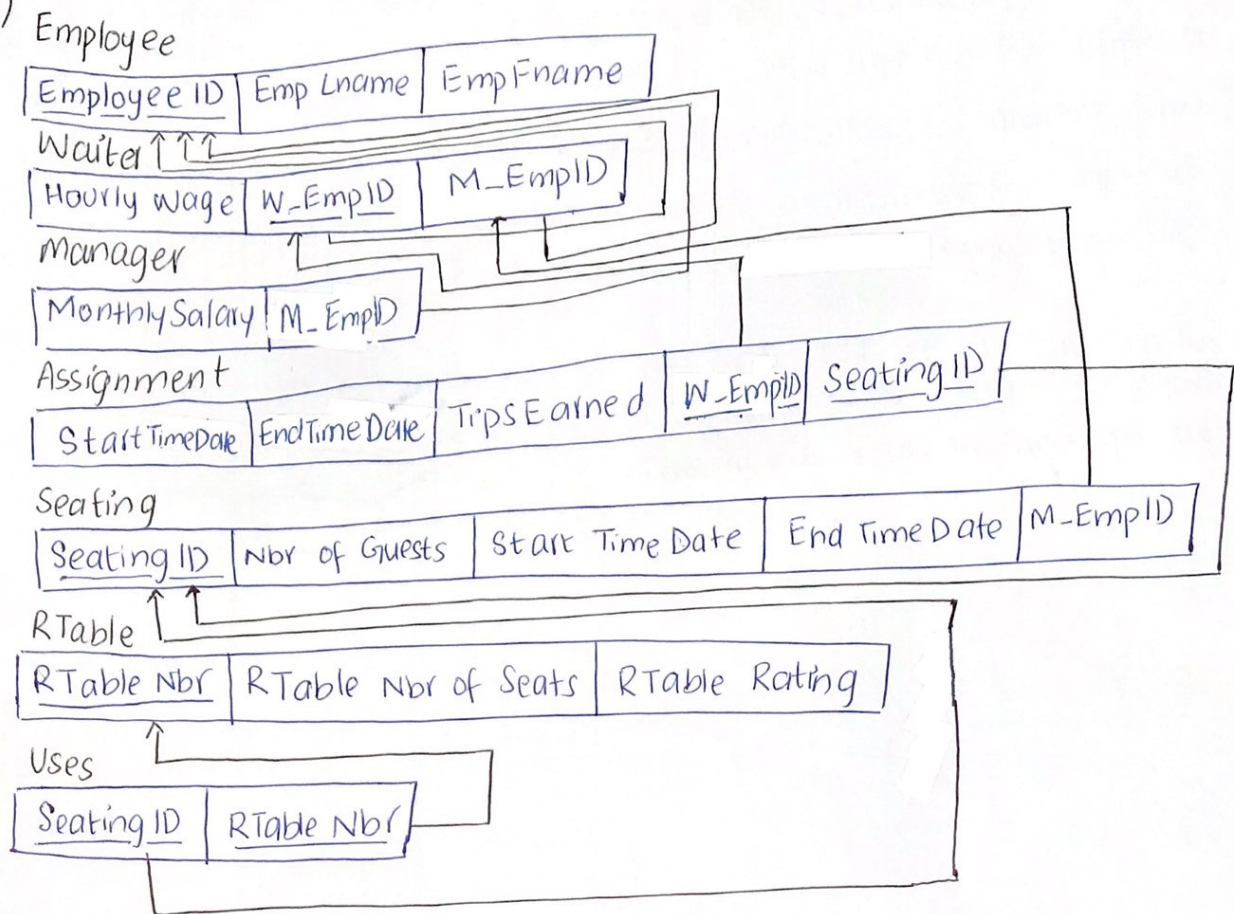 )
Employee
Employee ID Emp Lname EmpFname
Waiter
Hourly wage W_EmpID M_EmpID
Manager
MonthlySalary M_EmpID
Assignment
StartTimeDate EndTimeDate TipsEarned W_EmpID Seating ID
Seating
Seating ID Nbr of Guests Start Time Date End Time Date M_EmpID
RTable
RTable Nbr RTable Nbr of Seats RTable Rating
Uses
Seating ID RTable Nbr